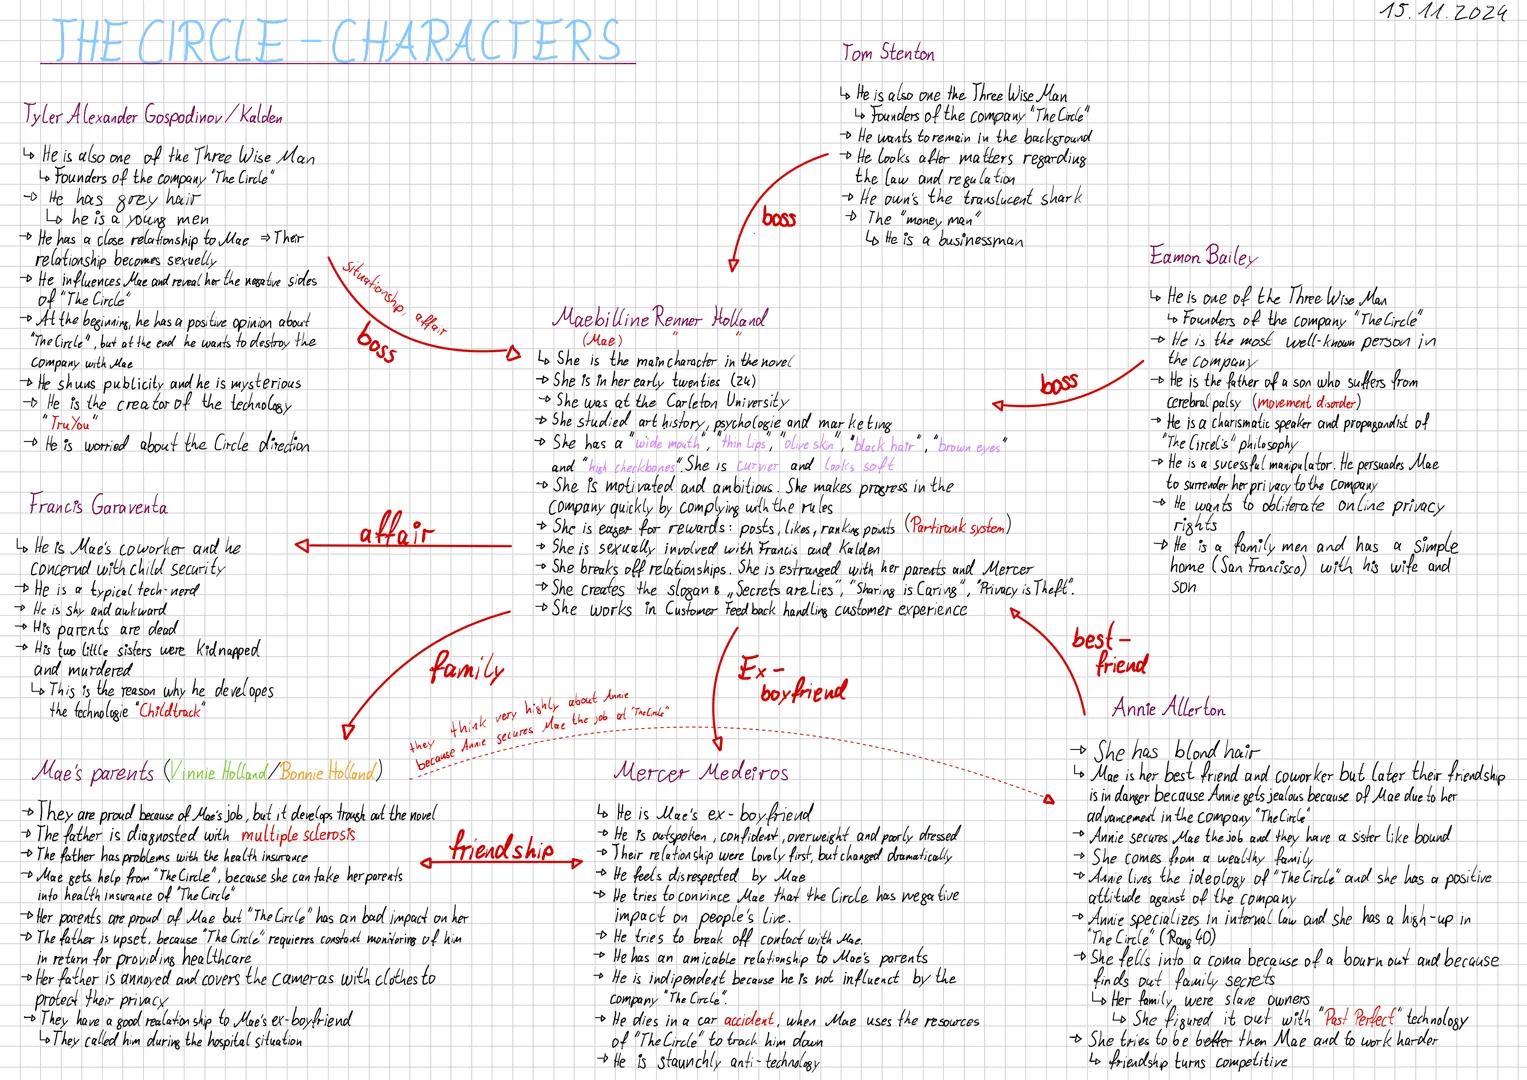 15.11.2024
THE CIRCLE - CHARACTERS
Tyler Alexander Gospodinov/Kalden
↳ He is also one of the Three Wise Man
↳ Founders of the company "The Circle"
→ He has grey hair
↳ he is a young men
→ He has a close relationship to Mae ⇒ Their
relationship becomes sexuelly
→ He influences Mae and reveal her the negative sides
of "The Circle"
→ At the beginning, he has a positive opinion about
"The Circle", but at the end he wants to destroy the
company with Mae
→ He shuns publicity and he is mysterious
→ He is the creator of the technology
"TruYou"
→ He is worried about the Circle direction
situationship, affair
boss
Tom Stenton
↳ He is also one the Three Wise Man
↳ Founders of the company "The Circle"
→ He wants to remain in the background
→ He looks after matters regarding
the law and regulation
→ He own's the translucent shark
→ The "money man"
↳ He is a businessman
boss
Eamon Bailey
↳ He is one of the Three Wise Man
↳ Founders of the company "The Circle"
→ He is the most well-known person in
the company
→ He is the father of a son who suffers from
cerebral palsy (movement disorder)
→ He is a charismatic speaker and propagandist of
"The Circel's" philosophy
→ He is a sucessful manipulator. He persuades Mae
to surrender her privacy to the company
→ He wants to obliterate online privacy
rights
→ He is a family men and has a simple
home (San Francisco) with his wife and
son
boss
Maebilline Renner Holland
(Mae) " "
↳ She is the main character in the novel
→ She is in her early twenties (24)
→ She was at the Carleton University
→ She studied art history, psychologie and marketing
→ She has a "wide mouth", "thin lips", "olive skin", "black hair", "brown eyes"
and "high checkbones". She is curvier and looks soft
→ She is motivated and ambitious. She makes progress in the
company quickly by complying with the rules
→ She is eager for rewards: posts, likes, ranking points (Partirank system)
→ She is sexually involved with Francis and Kalden
→ She breaks off relationships. She is estranged with her parents and Mercer
→ She creates the slogans „Secrets are Lies", "Sharing is Caring", "Privacy is Theft".
→ She works in Customer Feedback handling customer experience
Francis Garaventa
↳ He is Mae's coworker and he
concernd with child security
→ He is a typical tech-nerd
→ He is shy and awkward
→ His parents are dead
→ His two little sisters were kidnapped
and murdered
↳ This is the reason why he developes
the technologie "Childtrack"
affair
family
Ex-
boyfriend
best-
friend
they think very highly about Annie
because Annie secures Mae the job at "The Circle"
Mae's parents (Vinnie Holland/Bonnie Holland)
→ They are proud because of Mae's job, but it develops trough out the novel
→ The father is diagnosted with multiple sclerosis
→ The father has problems with the health insurance
→ Mae gets help from "The Circle", because she can take her parents
into health insurance of "The Circle"
→ Her parents are proud of Mae but "The Circle" has an bad impact on her
→ The father is upset, because "The Circle" requieres constant monitoring of him
in return for providing healthcare
→ Her father is annoyed and covers the cameras with clothes to
protect their privacy
→ They have a good realationship to Mae's ex-boyfriend
↳ They called him during the hospital situation
friendship
Mercer Medeiros
↳ He is Mae's ex-boyfriend
→ He is outspoken, confident, overweight and poorly dressed
→ Their relationship were lovely first, but changed dramatically
→ He feels disrespected by Mae
→ He tries to convince Mae that the Circle has negative
impact on people's live.
→ He tries to break off contact with Mae.
→ He has an amicable relationship to Mae's parents
→ He is indipendent because he is not influenct by the
company "The Circle".
→ He dies in a car accident, when Mae uses the resources
of "The Circle" to track him down
→ He is staunchly anti-technology
Annie Allerton
→ She has blond hair
↳ Mae is her best friend and coworker but later their friendship
is in danger because Annie gets jealous because of Mae due to her
advancement in the company "The Circle"
→ Annie secures Mae the job and they have a sister like bound
→ She comes from a wealthy family
→ Annie lives the ideology of "The Circle" and she has a positive
attitude aganst of the company
→ Annie specializes in internal law and she has a high-up in
"The Circle" (Rang 40)
→ She fells into a coma because of a bourn out and because
finds out family secrets
↳ Her family were slave owners
↳ She figured it out with "Past Perfect" technology
→ She tries to be better then Mae and to work harder
↳ friendship turns competitive